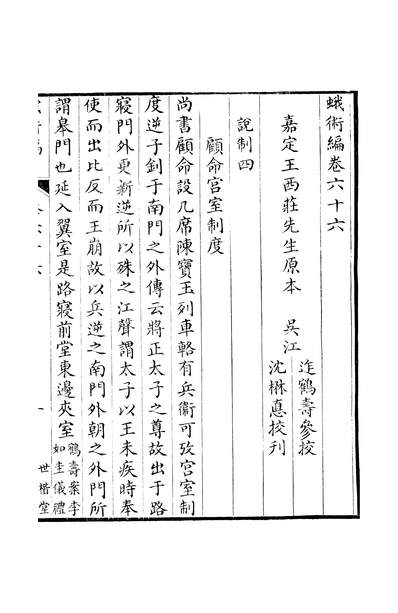 蛾術編卷六十六
嘉定王西莊先生原本
吳江
迮鶴壽參挍
沈楙惪挍刊
說制四
顧命宮室制度
尚書顧命設几席陳寶玉列車輅有兵衞可攷宮室制
度逆子釗于南門之外傳云將正太子之尊故出于路
寢門外更新逆所以殊之江聲謂太子以王未疾時奉
使而出比反而王崩故以兵逆之南門外朝之外門所
謂皋門也延入翼室是路寢前堂東邊夾室
鶴壽案李
如圭儀禮
一
世楷堂